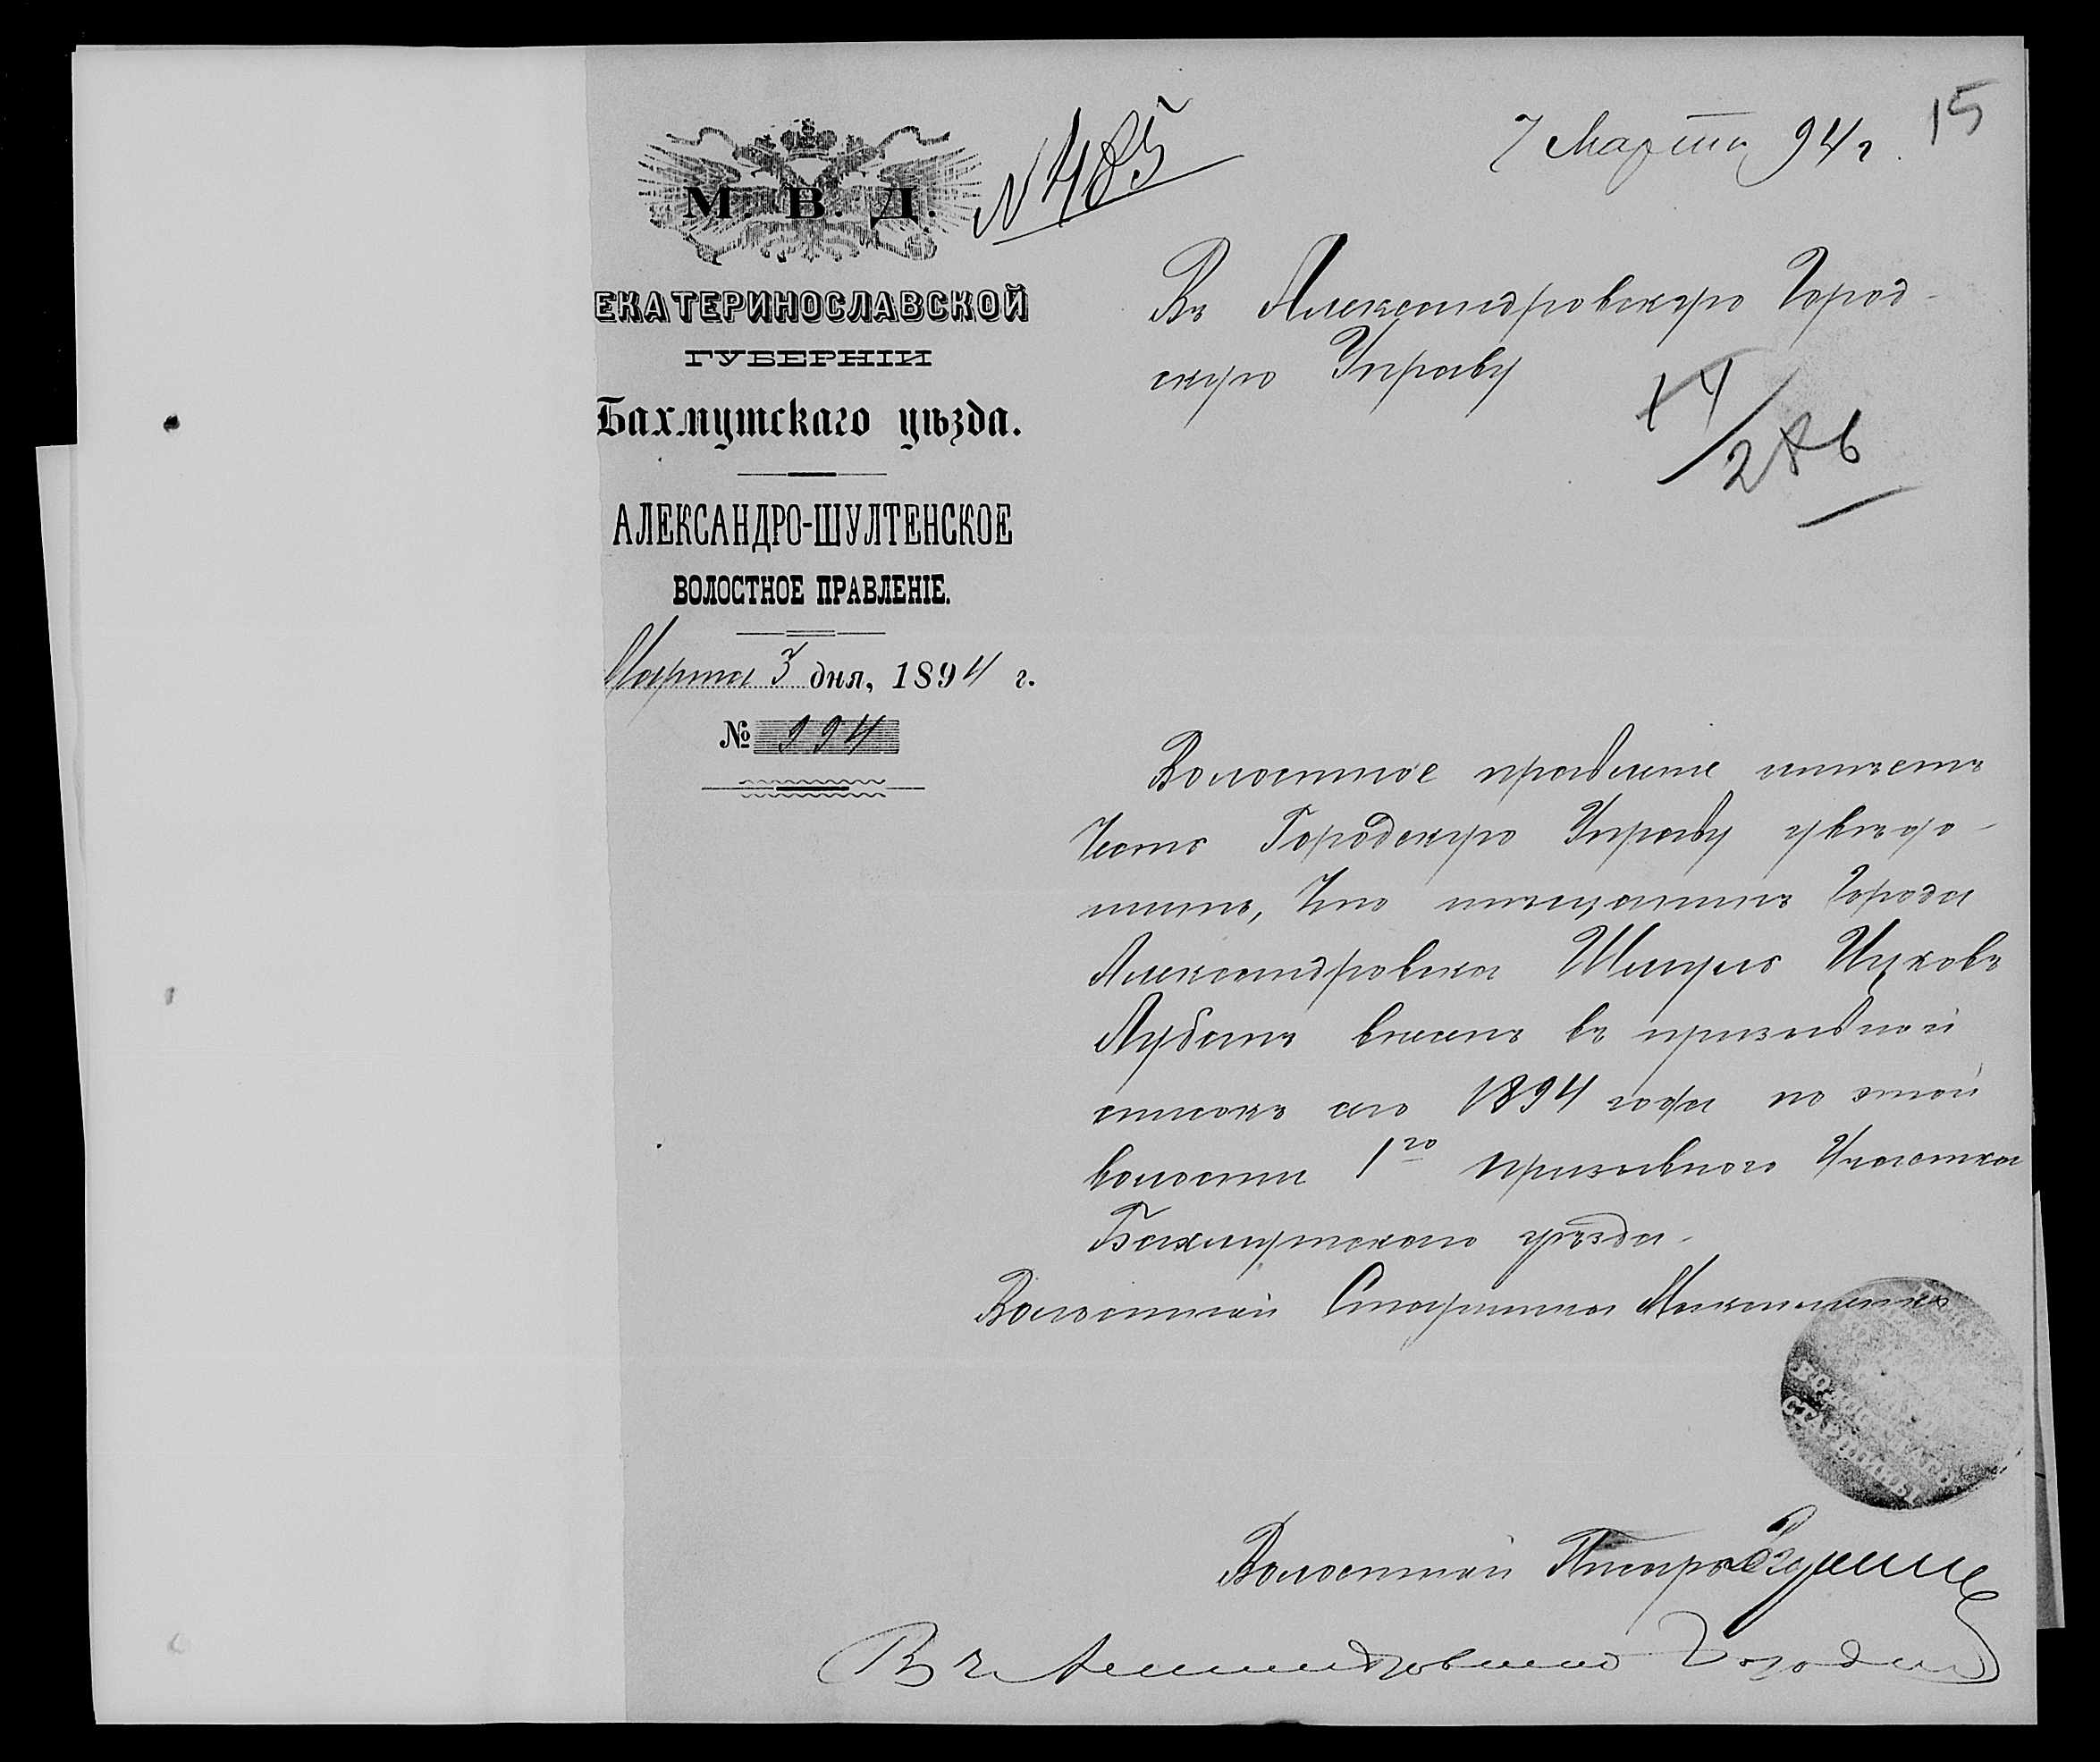 15
7 Марта 94 г.
№ 485
М. В. Д.
ЕКАТЕРИНОСЛАВСКОЙ
ГУБЕРНІИ
Бахмутскаго уѣзда.
АЛЕКСАНДРО-ШУЛТЕНСКОЕ
ВОЛОСТНОЕ ПРАВЛЕНІЕ.
Марта 3 дня, 1894 г.
№ 994
Въ Александровскую Город-
скую Управу
14/286
Волостное правленіе имѣетъ
Честь Городскую Управу увѣдо-
мить, Что мѣщанинъ Города
Александровска Шмуль Ицковъ
внесенъ въ призывной
списокъ сего 1894 года по этой
волости 1го призывного Участка
Бахмутскаго уѣзда.
Волостной Старшина
ВОЛОСТНАГО
СТАРШИНЫ
Волостной Писарь
Въ Александровскую Городск